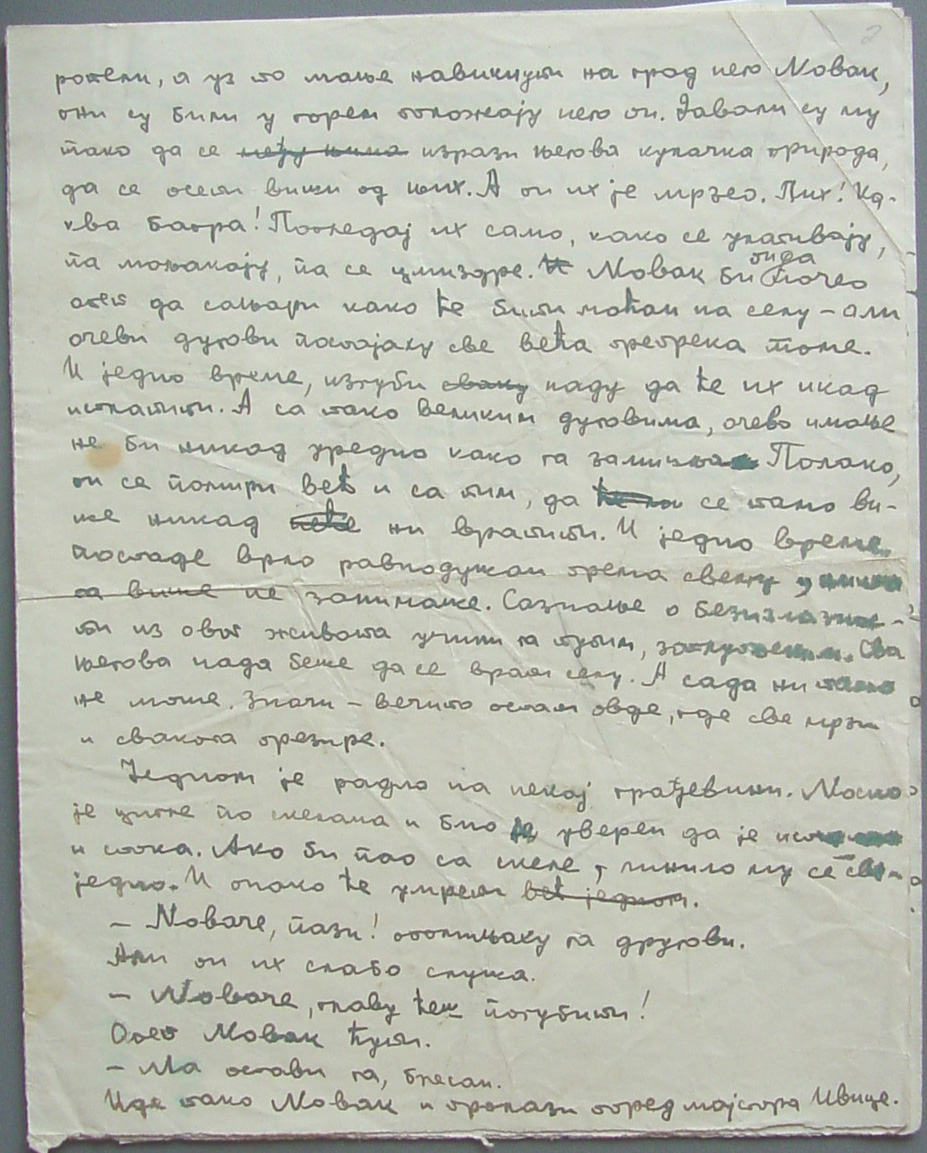 2
ротели, а уз то мање навикнути на град него Новак,
они су били у горем положају него он. Давали су му
тако да се међу њима изрази његова кулачка природа,
да се осети виши од њих. А он их је мрзео. Пих! Ка-
ква багра! Погледај их само, како се улагивају,
па мољакају, па се цмиздре. И Новак би онда почео
опет да сањари како ће бити моћан на селу – али
очеви дугови постојаху све већа препрека томе.
И једно време, изгуби сваку наду да ће их икад
исплатити. А са тако великим дуговима, очево имање
не би никад уредио како га замишља Полако,
он се помири већ и са тим, да ће се тамо ви-
ше никад неће ни вратити. И једно време
постаде врло равнодушан према свему
га више не занимаше. Сазнање о безизлазнос-
ти из овог живота учини га тупим, заглупљеним. Сва
његова нада беше да се врати селу. А сада ни тамо
не може. Значи – вечито остати овде, где све мрзи
и свакога презире.
Једном је радио на некој грађевини. Носио
је цигле по скелама и био је уверен да је
и стока. Ако би пао са скеле, чинило му се све-
једно. И онако ће умрети већ једном.
– Новаче, пази! опомињаху га другови.
Али он их слабо слуша.
– Новаче, главу ћеш погубити!
Опет Новак ћути.
– Ма остави га, бесан.
Иде тако Новак и пролази поред мајстора Ивице.